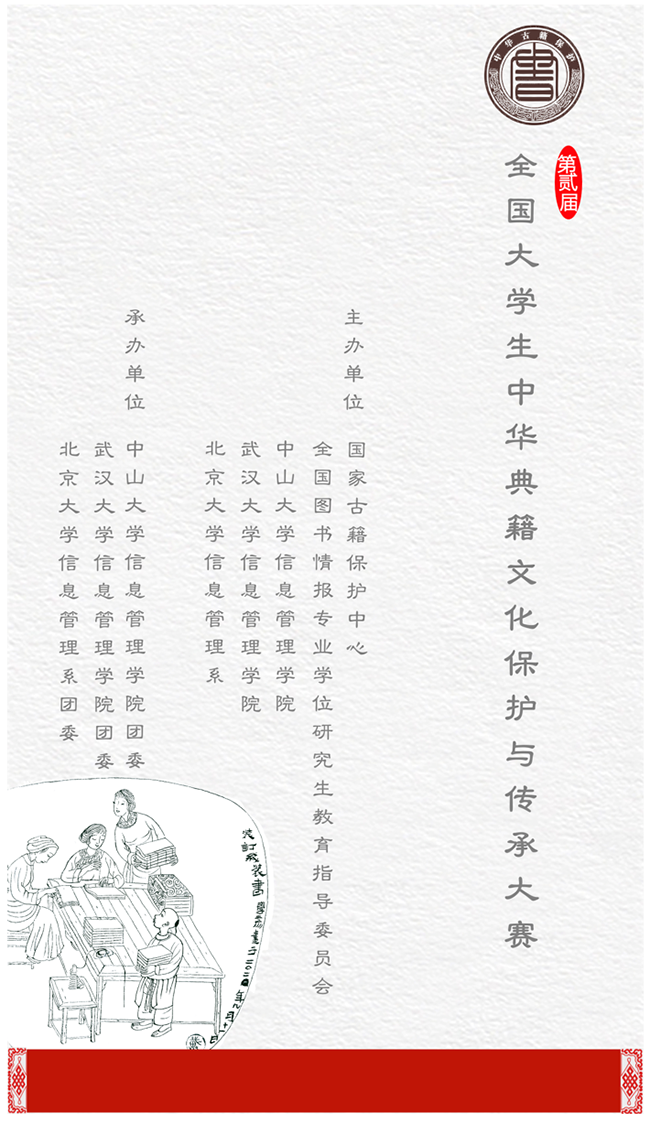 中华古籍保护
書
第贰届
全国大学生中华典籍文化保护与传承大赛
主办单位
国家古籍保护中心
全国图书情报专业学位研究生教育指导委员会
中山大学信息管理学院
武汉大学信息管理学院
北京大学信息管理系
承办单位
中山大学信息管理学院团委
武汉大学信息管理学院团委
北京大学信息管理系团委